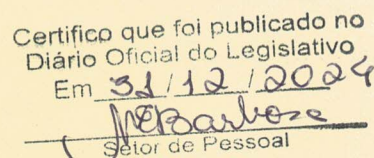 Certifico que foi publicado no
Diário Oficial do Legislativo
Em 31/12/2024
MBarbosa
Setor de Pessoal